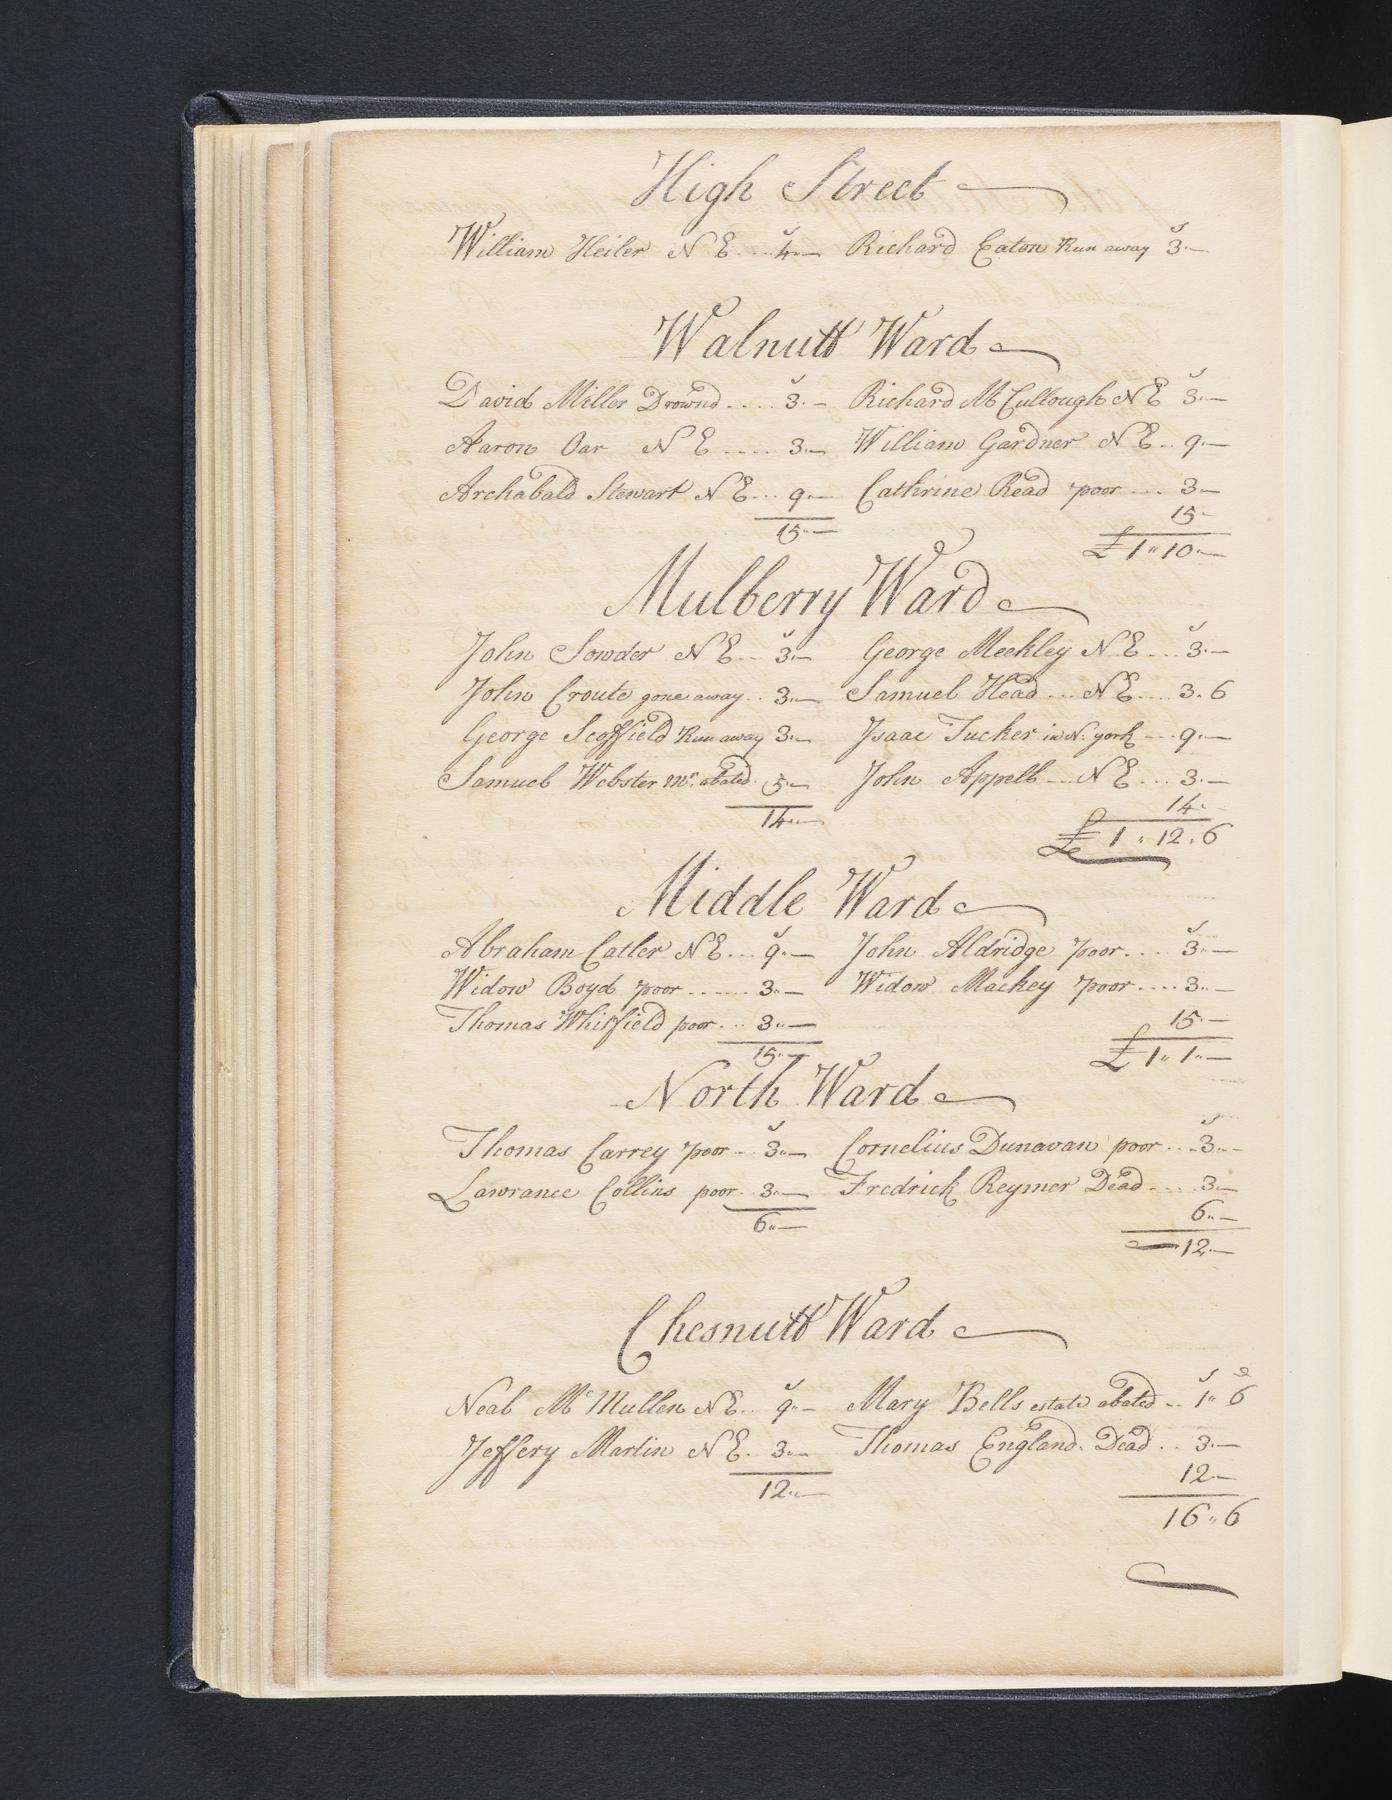 High Street
William Heiler N E .... 4 .— Richard Eaton Run away 3 .—
Walnutt Ward
David Miller Drownd ..... 3 .— Richard McCullough N E 3 .—
Aaron Oar N E ..... 3 .— William Gardner N E .. 9 .—
Archabald Stewart N E ... 9 .— Cathrine Read poor .... 3 —
15 .— 15 -
£ 1 " 10 .—
Mulberry Ward
John Sowder N E ... 3 .— George Meekley N E .... 3 .—
John Croute gone away .. 3 .— Samuel Head .... N E .... 3 . 6
George Scoffield Run away 3 .— Isaac Tucker in N. york ... 9 .—
Samuel Webster mr. abated . 5 .— John Appelb .... N E .... 3 .—
14 .— 14 .—
£ 1 " 12 " 6
Middle Ward
Abraham Catler N E ... 9 .— John Aldridge poor .... 3 " —
Widow Boyd poor ....... 3 " — Widow Mackey poor .... 3 " —
Thomas Whitfield poor ... 3 " — 15 " —
15 " — £ 1 " 1 " —
North Ward
Thomas Carrey poor ... 3 " — Cornelius Dunavan poor ... 3 " —
Lawrance Collins poor . 3 .— Fredrick Reymer Dead .... 3 —
6 " — 6 " —
12 .—
Chesnutt Ward
s s d
Neal Mc Mullen N E .. 9 " — Mary Bells estate abated .. 1 " 6
Jeffery Martin N E . 3 .— Thomas England . Dead .. 3 .—
12 .— 12 .—
16 " 6